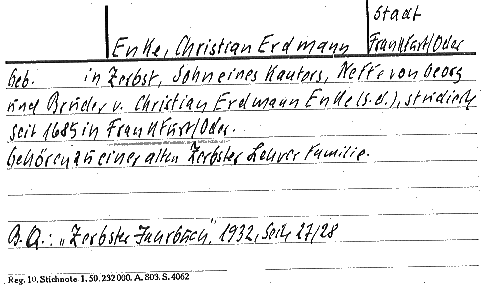 Stadt
Enke, Christian Erdmann
Frankfurt/Oder
Geb. in Zerbst, Sohn eines Kantors, Neffe von Georg
und Bruder v. Christian Erdmann Enke (s.d.), studierte
seit 1685 in Frankfurt/Oder.
Gehören zu einer alten Zerbster Lehrer Familie.
B.Q.: „Zerbster Jahrbuch", 1932, Seite 27/28
Reg. 10. Stichnote 1. 50. 232000. A. 803. S. 4062